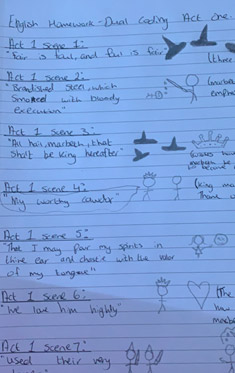 English Homework - Dual Coding Act One
Act 1 scene 1:
"Fair is foul, and foul is fair"
(three
Act 1 scene 2:
"Brandished steel, which
smoked with bloody
execution"
Act 1 Scene 3:
"All hail, macbeth, that
shalt be king hereafter"
Act 1 Scene 4:
"My worthy cawdor"
(King
Act 1 Scene 5:
"That I may pour my spirits in
thine ear and chastise with the valor
of my tongue"
Act 1 Scene 6:
"We love him highly"
(The
Act 1 Scene 7:
"used their very